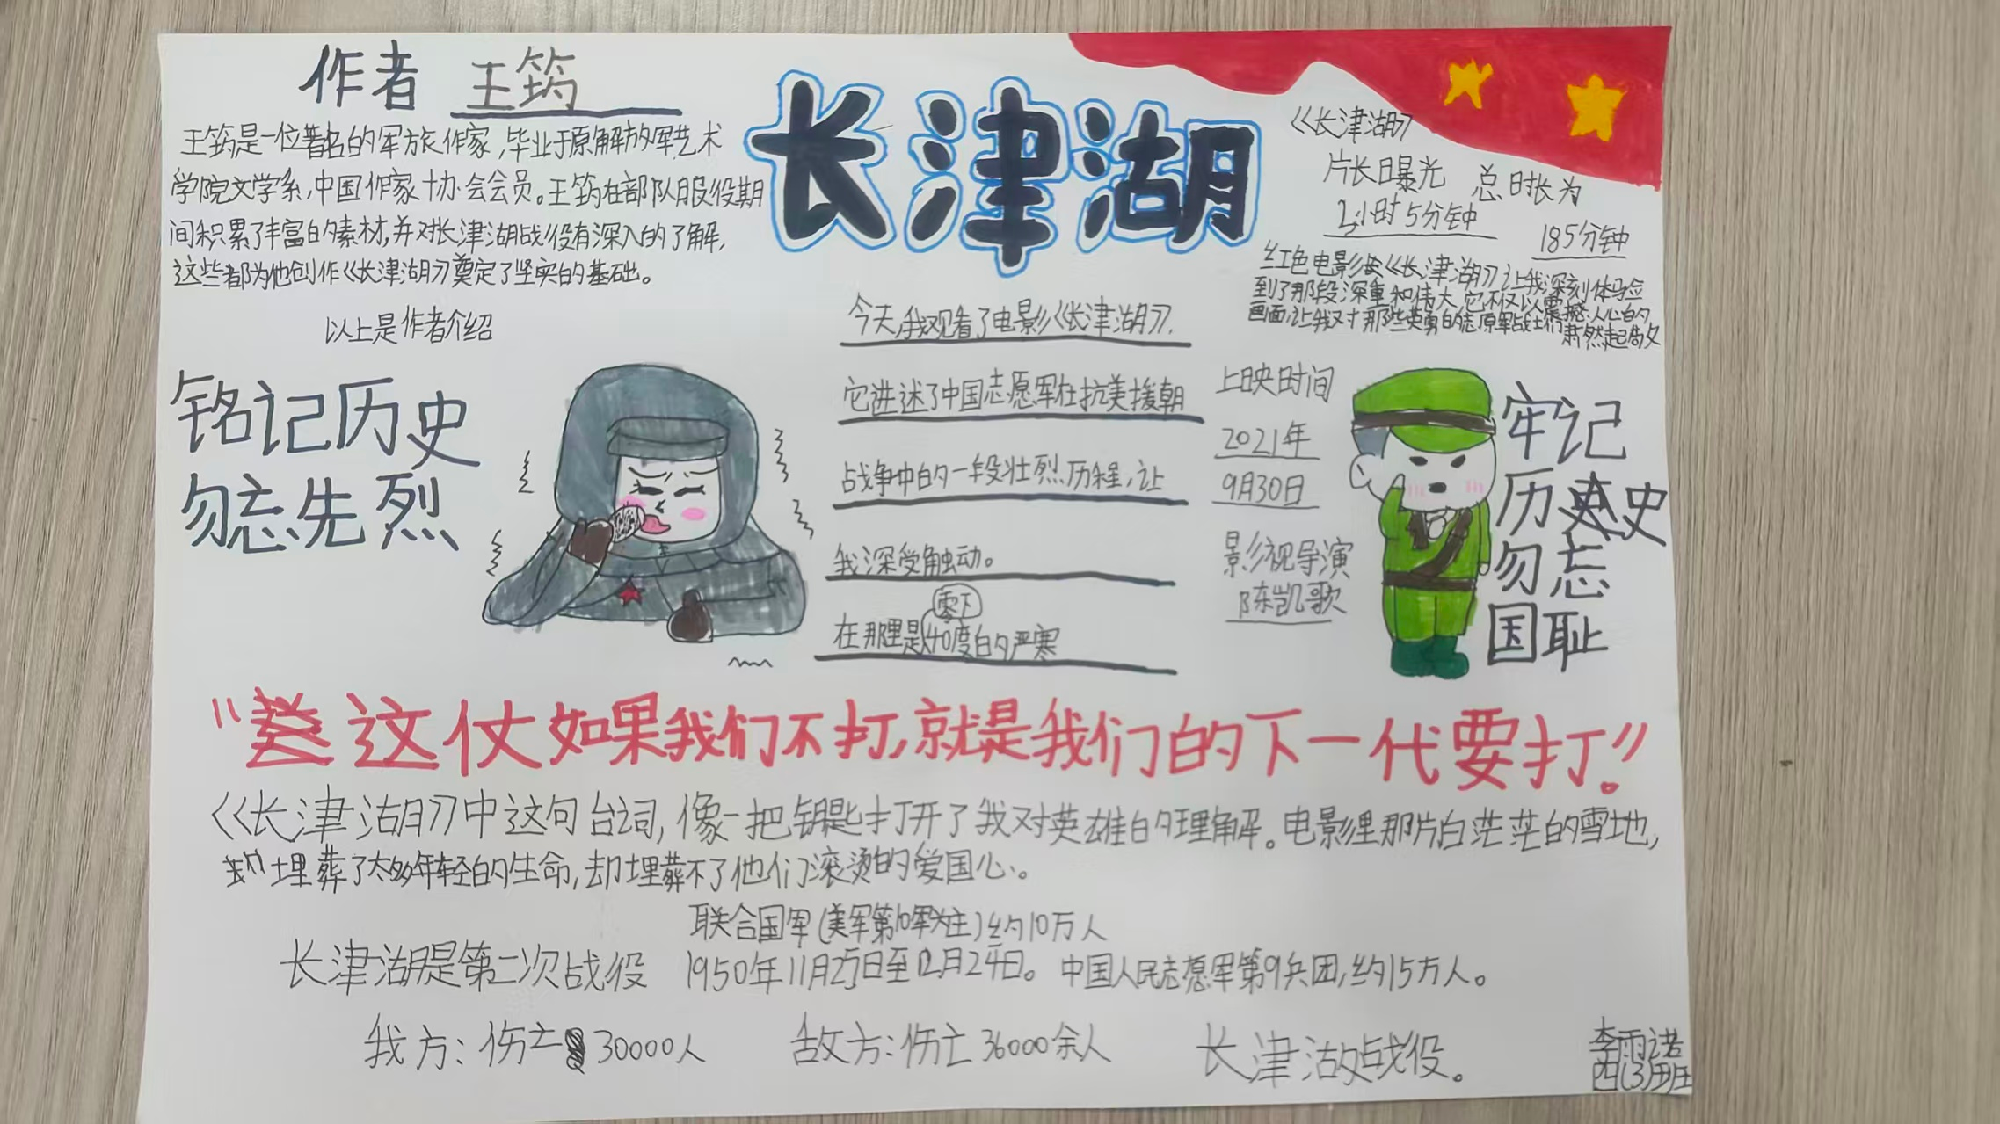 作者 王筠
王筠是一位著名的军旅作家,毕业于原解放军艺术
学院文学系,中国作家协会会员。王筠在部队服役期
间积累了丰富的素材,并对长津湖战役有深入的了解,
这些都为他创作《长津湖》奠定了坚实的基础。
以上是作者介绍
铭记历史
勿忘先烈
长津湖
《长津湖》
片长曝光 总时长为
2小时5分钟
185分钟
红色电影《长津湖》让我深刻体验
到了那段深重和伟大,它不仅以震撼人心的
画面,让我对那些英勇的志原军战士们肃然起敬
今天,我观看了电影《长津湖》,
它进述了中国志愿军在抗美援朝
战争中的一段壮烈历程,让
我深受触动。
在那里是零下40度的严寒
上映时间
2021年
9月30日
影视导演
陈凯歌
牢记
历史
勿忘
国耻
“这仗如果我们不打,就是我们的下一代要打。”
《长津湖》中这句台词,像一把钥匙打开了我对英雄的理解。电影里那片白茫茫的雪地,
埋葬了太多年轻的生命,却埋葬不了他们滚烫的爱国心。
联合国军(美军第10军为主)约10万人
长津湖是第二次战役 1950年11月27日至12月24日。 中国人民志愿军第9兵团,约15万人。
我方:伤亡30000人 敌方:伤亡36000余人 长津湖战役。
李雨诺
四(3)班